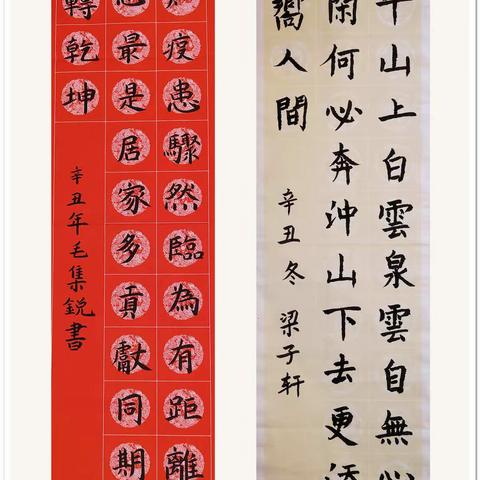 平山上白雲泉雲自無心
閑何必奔沖山下去更添
嚮人間
辛丑冬 梁子轩
疫患驟然臨為有距離
最是居家多貢獻同期
轉乾坤
辛丑年毛集銳書